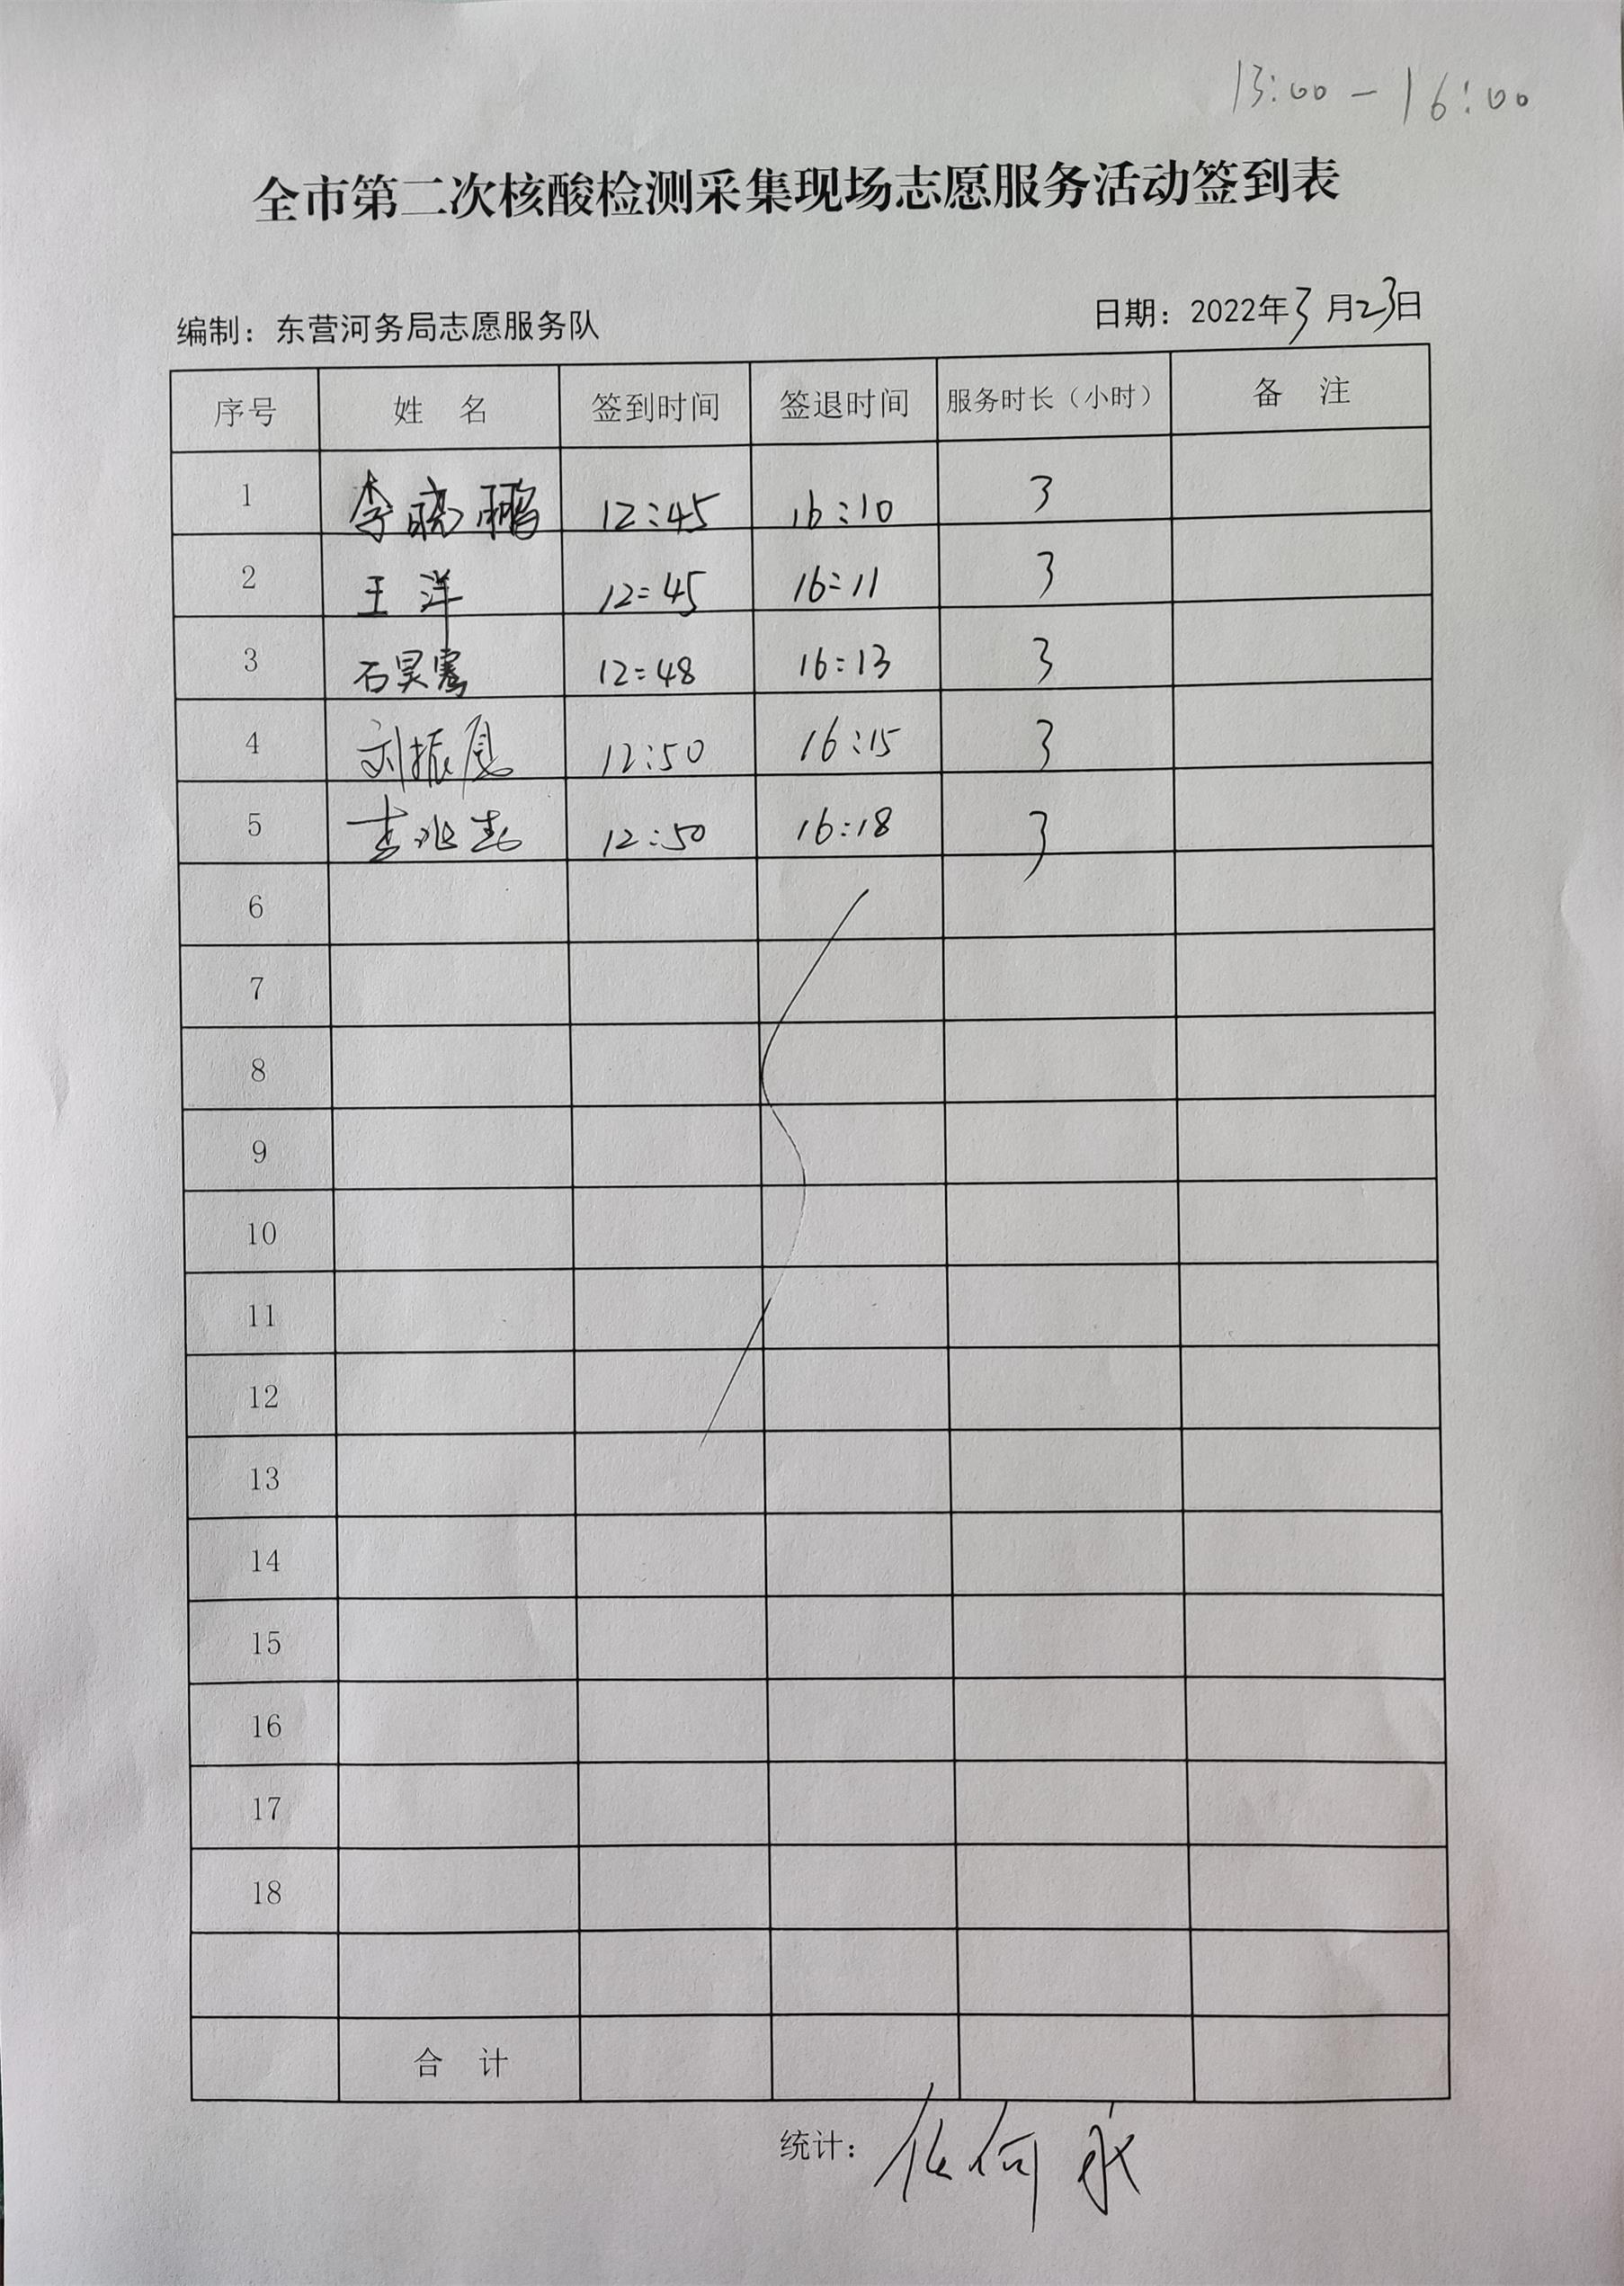 13:00 — 16:00
全市第二次核酸检测采集现场志愿服务活动签到表
编制：东营河务局志愿服务队 日期：2022年3月23日
序号 姓 名 签到时间 签退时间 服务时长（小时） 备 注
1 李晓鹏 12:45 16:10 3
2 王洋 12:45 16:11 3
3 石昊骞 12:48 16:13 3
4 刘振 12:50 16:15 3
5 李兆志 12:50 16:18 3
6
7
8
9
10
11
12
13
14
15
16
17
18
合 计
统计：